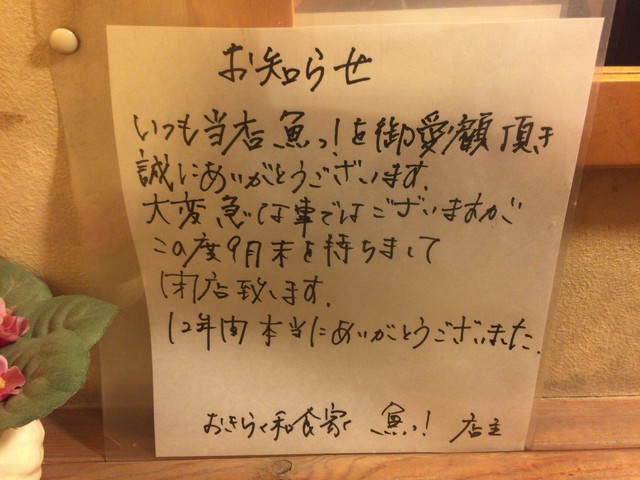 お知らせ
いつも当店魚っ!を御愛顧頂き
誠にありがとうございます。
大変急な事ではございますが
この度9月末を持ちまして
閉店致します。
12年間本当にありがとうございました。
おきらく和食家 魚っ! 店主